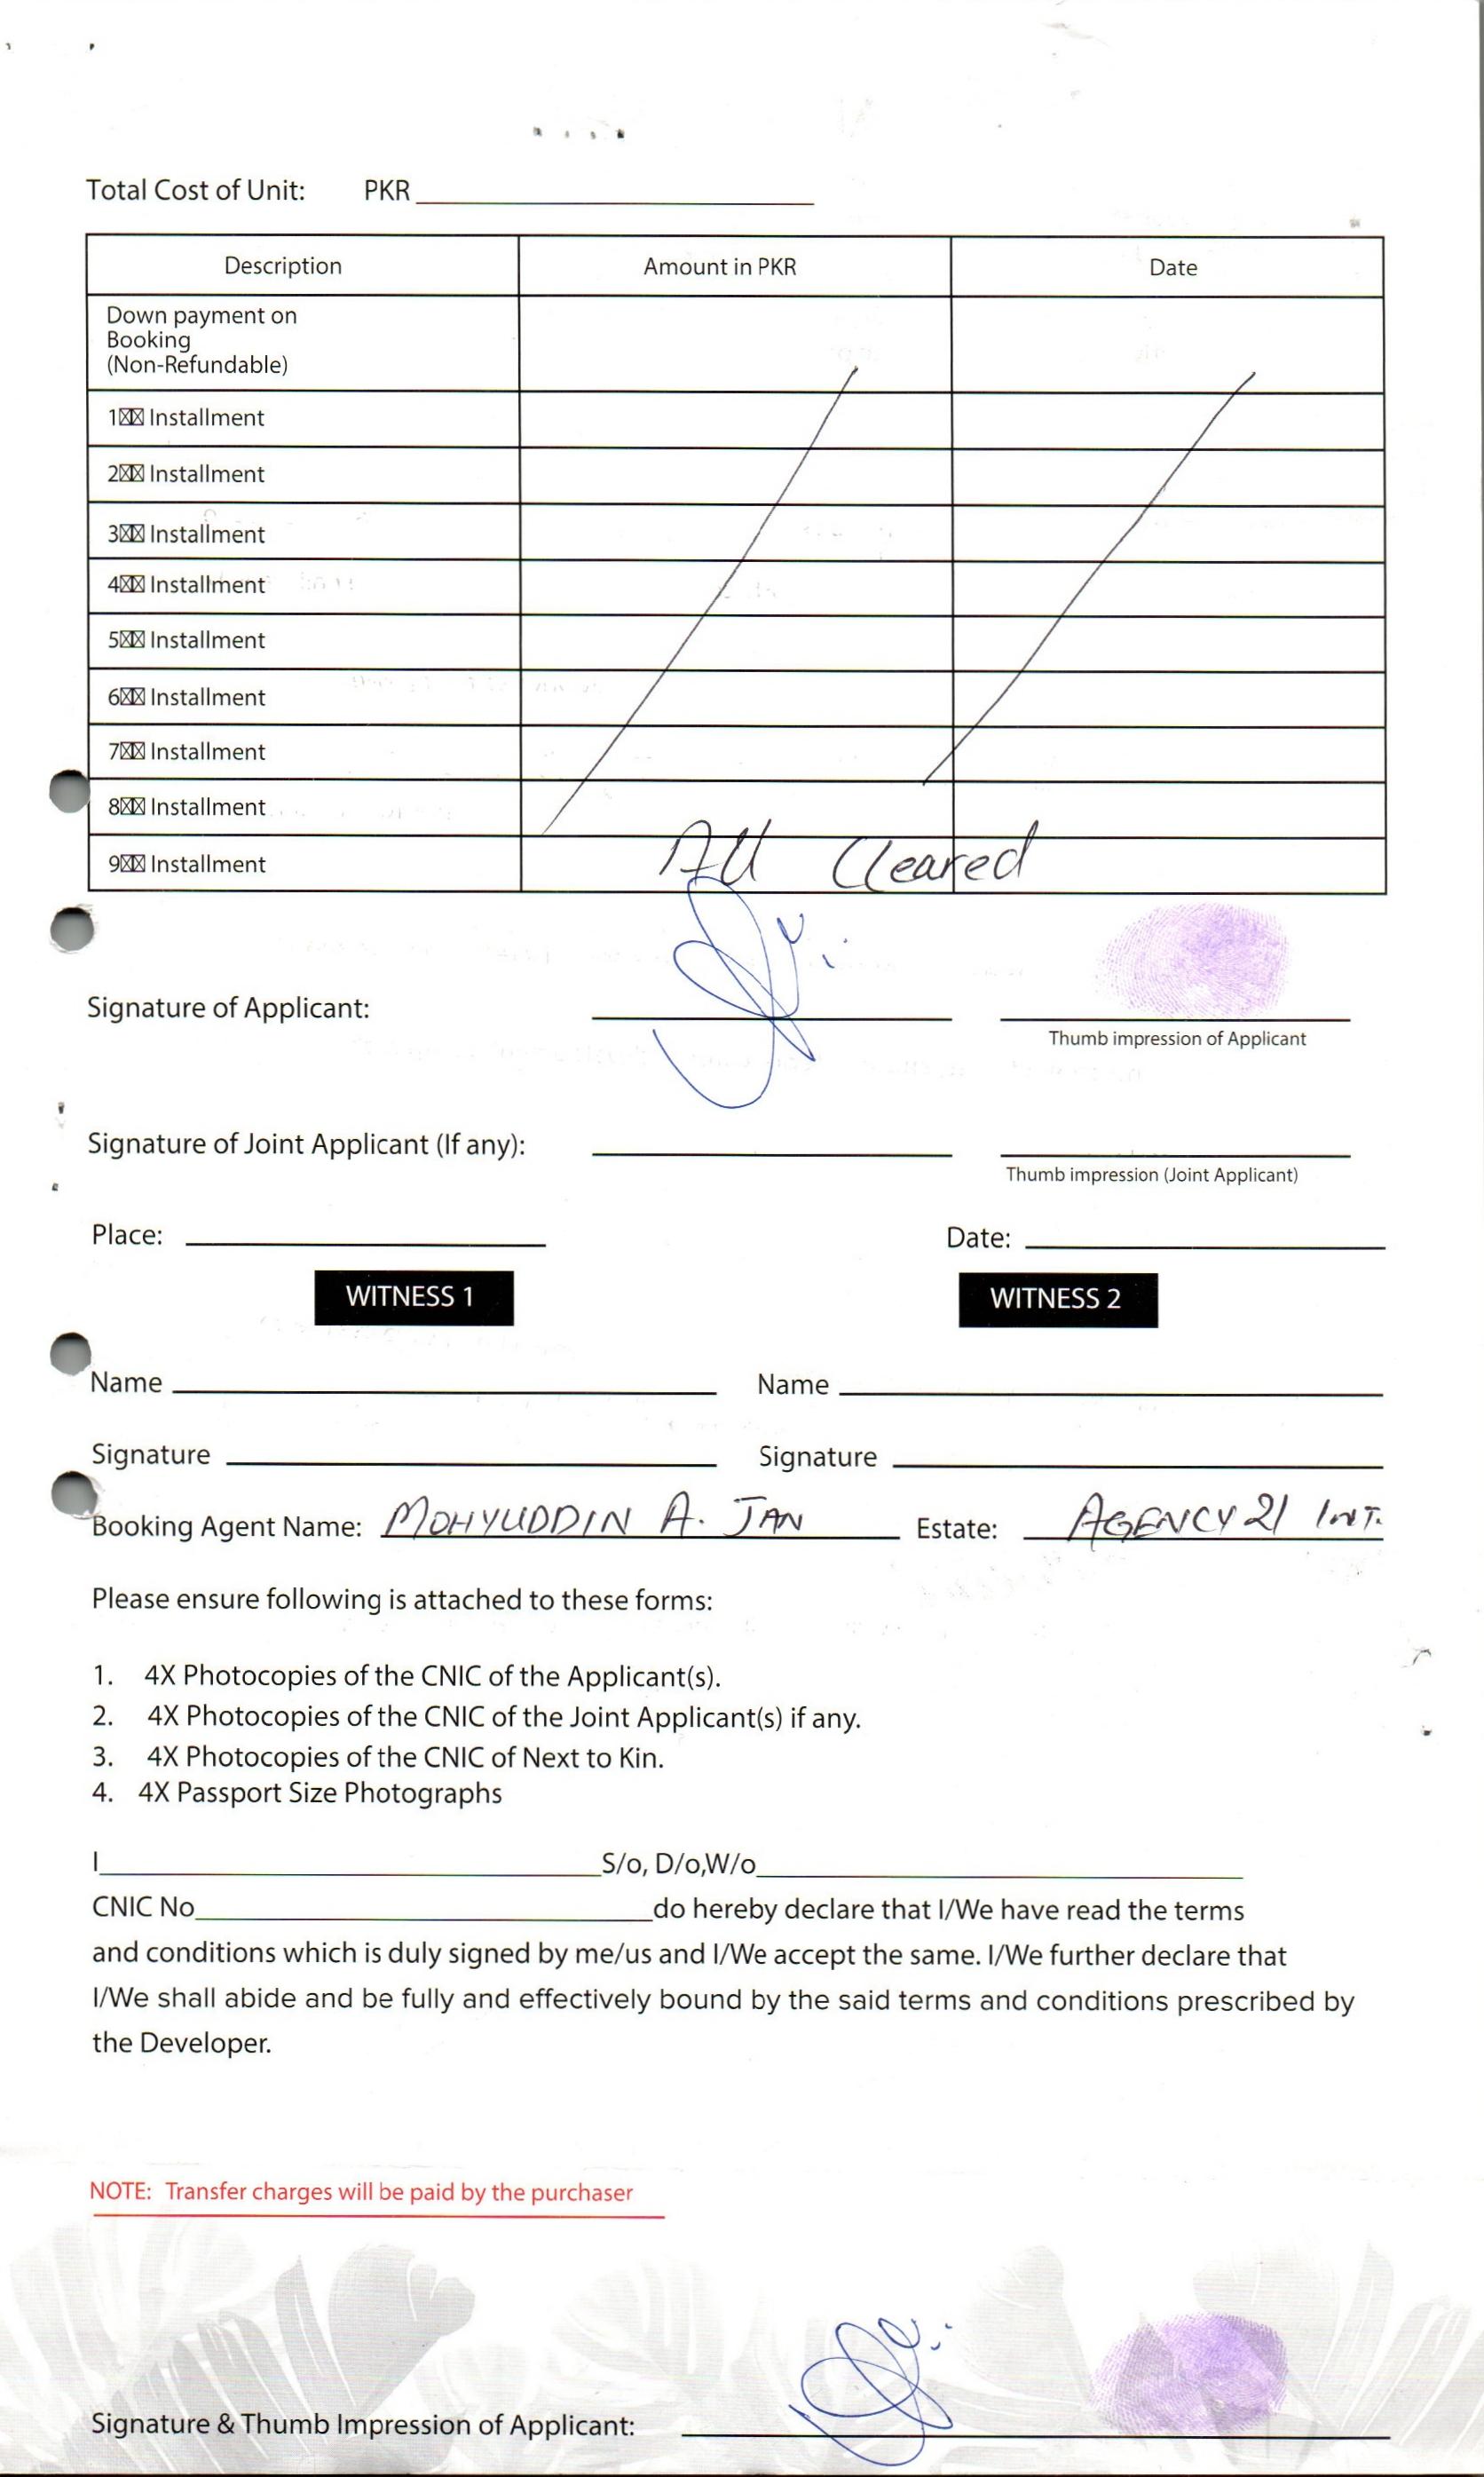 Total Cost of Unit: PKR
Description Amount in PKR Date
Down payment on
Booking
(Non-Refundable)
1☒☒ Installment
2☒☒ Installment
3☒☒ Installment
4☒☒ Installment
5☒☒ Installment
6☒☒ Installment
7☒☒ Installment
8☒☒ Installment
9☒☒ Installment All Cleared
Signature of Applicant:
Thumb impression of Applicant
Signature of Joint Applicant (If any):
Thumb impression (Joint Applicant)
Place: Date:
WITNESS 1 WITNESS 2
Name Name
Signature Signature
Booking Agent Name: MOHYUDDIN A. JAN Estate: AGENCY 21 INT.
Please ensure following is attached to these forms:
1. 4X Photocopies of the CNIC of the Applicant(s).
2. 4X Photocopies of the CNIC of the Joint Applicant(s) if any.
3. 4X Photocopies of the CNIC of Next to Kin.
4. 4X Passport Size Photographs
I S/o, D/o,W/o
CNIC No do hereby declare that I/We have read the terms
and conditions which is duly signed by me/us and I/We accept the same. I/We further declare that
I/We shall abide and be fully and effectively bound by the said terms and conditions prescribed by
the Developer.
NOTE: Transfer charges will be paid by the purchaser
Signature & Thumb Impression of Applicant: